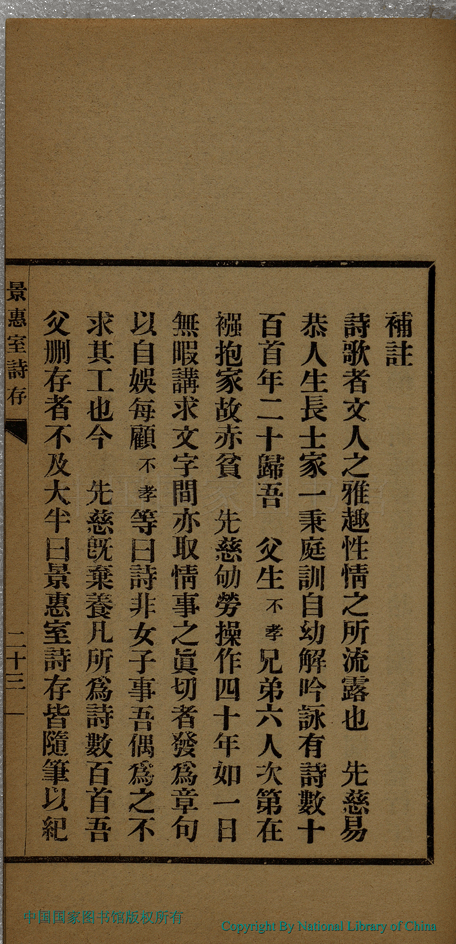 補註
詩歌者文人之雅趣性情之所流露也　先慈易
恭人生長士家一秉庭訓自幼解吟詠有詩數十
百首年二十歸吾　父生不孝兄弟六人次第在
襁抱家故赤貧　先慈劬勞操作四十年如一日
無暇講求文字間亦取情事之眞切者發爲章句
以自娛每顧不孝等曰詩非女子事吾偶爲之不
求其工也今　先慈旣棄養凡所爲詩數百首吾
父刪存者不及大半曰景惠室詩存皆隨筆以紀
景惠室詩存
二十三
中国国家图书馆版权所有
Copyright By National Library of China